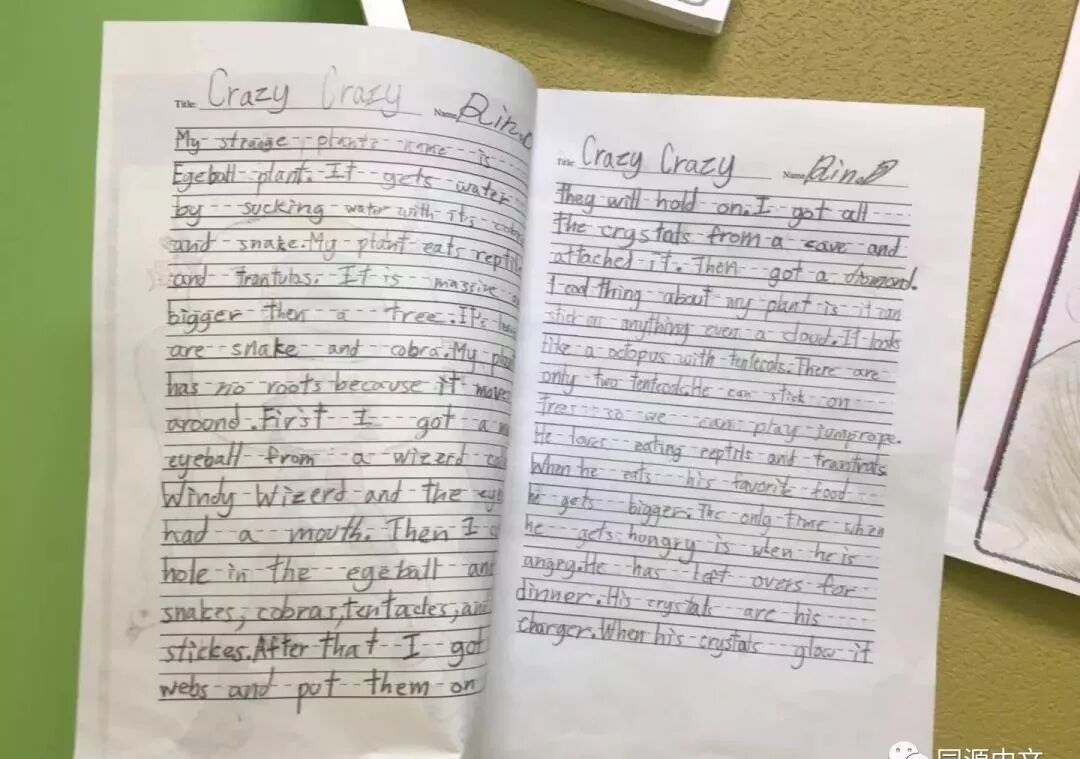 Title: Crazy Crazy Name
My strange plants name is
Eyeball plant. It gets water
by sucking water with its cobra
and snake. My plant eats reptile
and trantulas. It is massive
bigger then a tree. It's
are snake and cobra. My plant
has no roots because it moves
around. First I got a
eyeball from a wizerd
Windy Wizerd and the eye
had a mouth. Then I
hole in the eyeball and
snakes, cobras, tentacles, and
stickes. After that I got
webs and put them on
Title: Crazy Crazy Name
they will hold on. I got all
the crystals from a cave and
attached it. Then got a
1 cool thing about my plant is it can
stick on anything even a cloud. It looks
like a octopus with tentecals. There are
only two He can stick on
trees so we can play jumprope.
He loves eating reptils and
When he eats his favorite food
he gets bigger. The only time when
he gets hungry is when he is
angry. He has left overs for
dinner. His crystals are his
charger. When his crystals glow it
同源中文